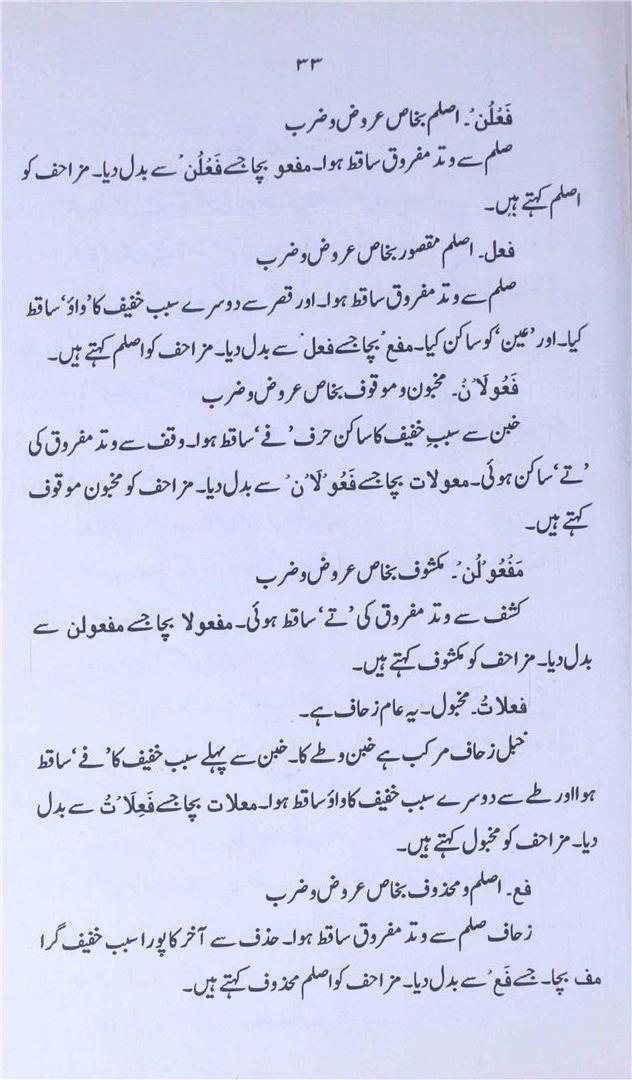 ۳۳
فَعْلُن ْ۔ اصلم بخاص عروض و ضرب
صلم سے وتد مفروق ساقط ہوا۔ مفعو بچا جسے فَعْلُن ْ سے بدل دیا۔ مزاحف کو
اصلم کہتے ہیں۔
فعل۔ اصلم مقصور بخاص عروض و ضرب
صلم سے وتد مفروق ساقط ہوا۔ اور قصر سے دوسرے سبب خفیف کا ’واؤ‘ ساقط
کیا۔ اور ’عین‘ کو ساکن کیا۔ مفع ْ بچا جسے فعل ْ سے بدل دیا۔ مزاحف کو اصلم کہتے ہیں۔
فَعُولَا ْن ْ۔ مخبون و موقوف بخاص عروض و ضرب
خبن سے سببِ خفیف کا ساکن حرف ’فے‘ ساقط ہوا۔ وقف سے وتد مفروق کی
’تے‘ ساکن ہوئی۔ معولات بچا جسے فَعُو ْلَا ْن ْ سے بدل دیا۔ مزاحف کو مخبون موقوف
کہتے ہیں۔
مَفْعُو ْلُن ْ۔ مکشوف بخاص عروض و ضرب
کشف سے وتد مفروق کی ’تے‘ ساقط ہوئی۔ مفعولا بچا جسے مفعولن سے
بدل دیا۔ مزاحف کو مکشوف کہتے ہیں۔
فعلاتُ۔ مخبول۔ یہ عام زحاف ہے۔
خبل زحاف مرکب ہے خبن و طے کا۔ خبن سے پہلے سبب خفیف کا ’فے‘ ساقط
ہوا اور طے سے دوسرے سبب خفیف کا واؤ ساقط ہوا۔ معلات بچا جسے فَعِلَا ْتُ سے بدل
دیا۔ مزاحف کو مخبول کہتے ہیں۔
فع۔ اصلم و محذوف بخاص عروض و ضرب
زحاف صلم سے وتد مفروق ساقط ہوا۔ حذف سے آخر کا پورا سبب خفیف گرا
مف بچا۔ جسے فَع ْ سے بدل دیا۔ مزاحف کو اصلم محذوف کہتے ہیں۔